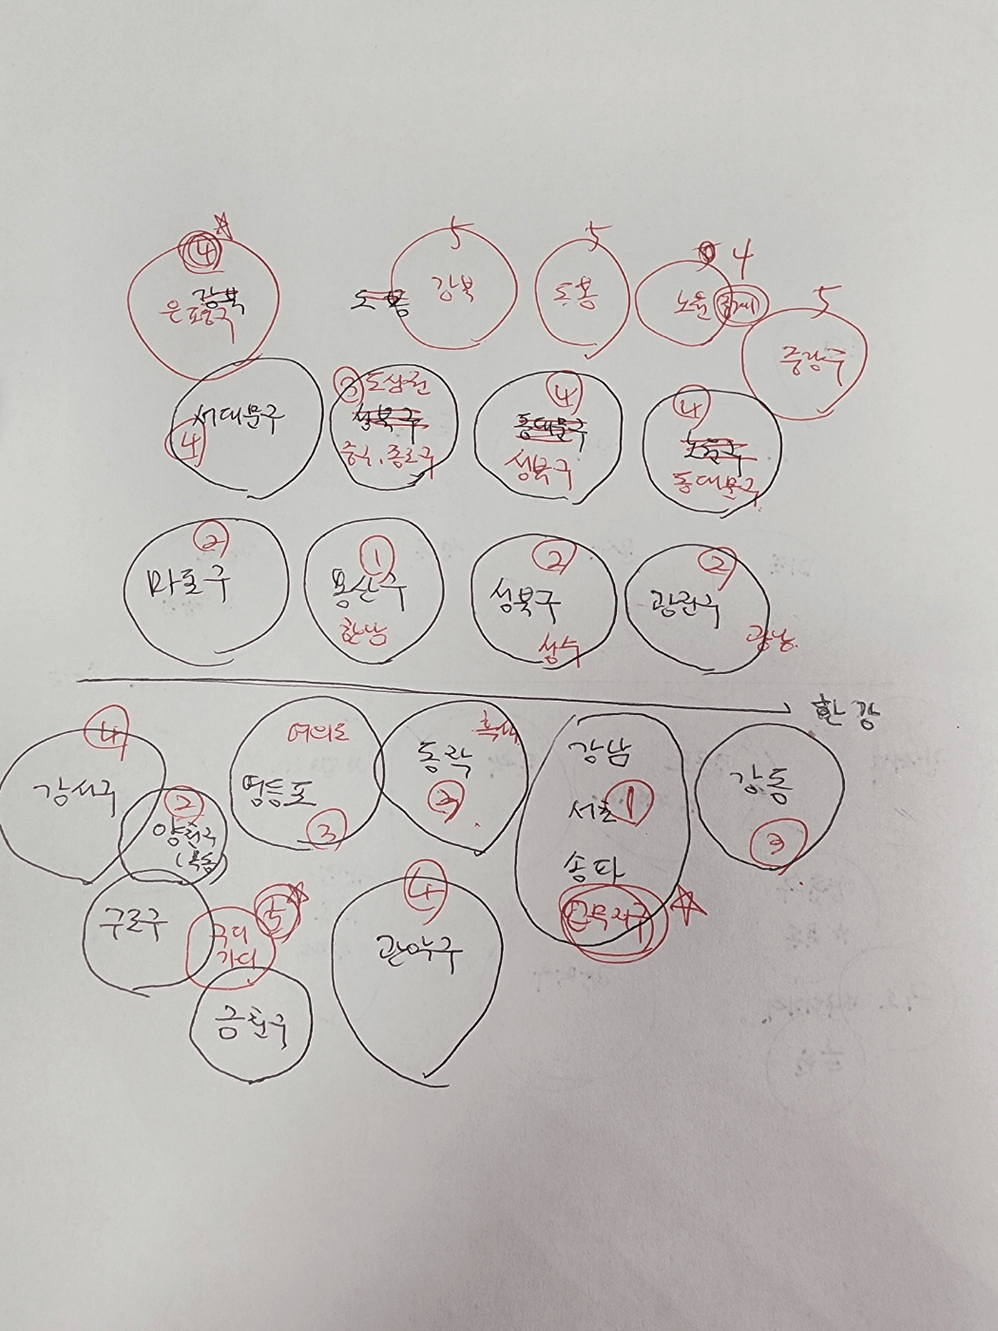 4
5
5
4
강북
은평구
도봉
강북
도봉
노원
5
중랑구
서대문구
4
3 도심권
성북구
중구, 종로구
4
동대문구
성북구
4
노원구
동대문구
2
마포구
1
용산구
한남
2
성북구
성수
2
광진구
광남
한강
4
강서구
2
양천구
(목동)
여의도
영등포
3
동작
흑석
강남
서초 1
송파
강동
3
구로구
5
구디
가디
금천구
4
관악구